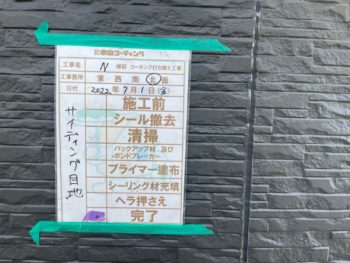 中山コーティング
工事名 N様邸 コーキング打ち替え工事
工事箇所 東 西 南 北 面
日付 2022年7月1日
サイディング目地
施工前
シール撤去
清掃
バックアップ材 及び
・ボンドブレーカー
プライマー塗布
シーリング材充填
ヘラ押さえ
完了